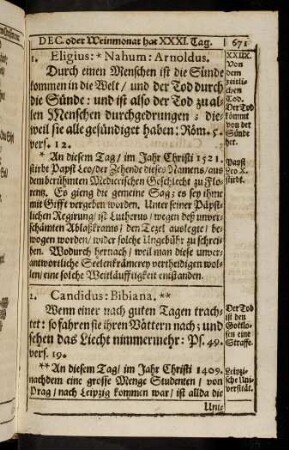 DEC. oder Weinmonat hat XXXI. Tag. 671
1. Eligius: * Nahum: Arnoldus.
Durch einen Menschen ist die Sünde
kommen in die Welt / und der Tod durch
die Sünde: und ist also der Tod zu al-
len Menschen durchgedrungen; die-
weil sie alle gesündiget haben: Röm. 5.
vers. 12.
* An diesem Tag / im Jahr Christi 1521.
stirbt Papst Leo / der Zehende dieses Namens / aus
dem berühmten Mediceischen Geschlecht zu Flo-
rentz. Es gieng die gemeine Sag; es sey ihme
mit Gifft vergeben worden. Unter seiner Päpst-
lichen Regirung / ist Lutherus / wegen deß unver-
schämten Ablaßkrams / den Tezel auslegte / be-
wogen worden / wider solche Ungebühr zu schrei-
ben. Wodurch hernach / weil man diese unver-
antwortliche Seelenkrämerey vertheidigen wol-
len / eine solche Weitläufftigkeit entstanden.
XXIX.
Von
dem
zeitli-
chen
Tod.
Der Tod
kommt
von der
Sünde
her.
Papst
Leo X.
stirbt.
1. Candidus: Bibiana. **
Wenn einer nach guten Tagen trach-
tet: so fahren sie ihren Vättern nach; und
sehen das Liecht nimmermehr: Ps. 49.
vers. 19.
** An diesem Tag / im Jahr Christi 1409.
nachdem eine grosse Menge Studenten / von
Prag / nach Leipzig kommen war / ist allda die
Uni-
Der Tod
ist den
Gottlo-
sen eine
Straffe.
Leipzi-
sche Uni-
versität.